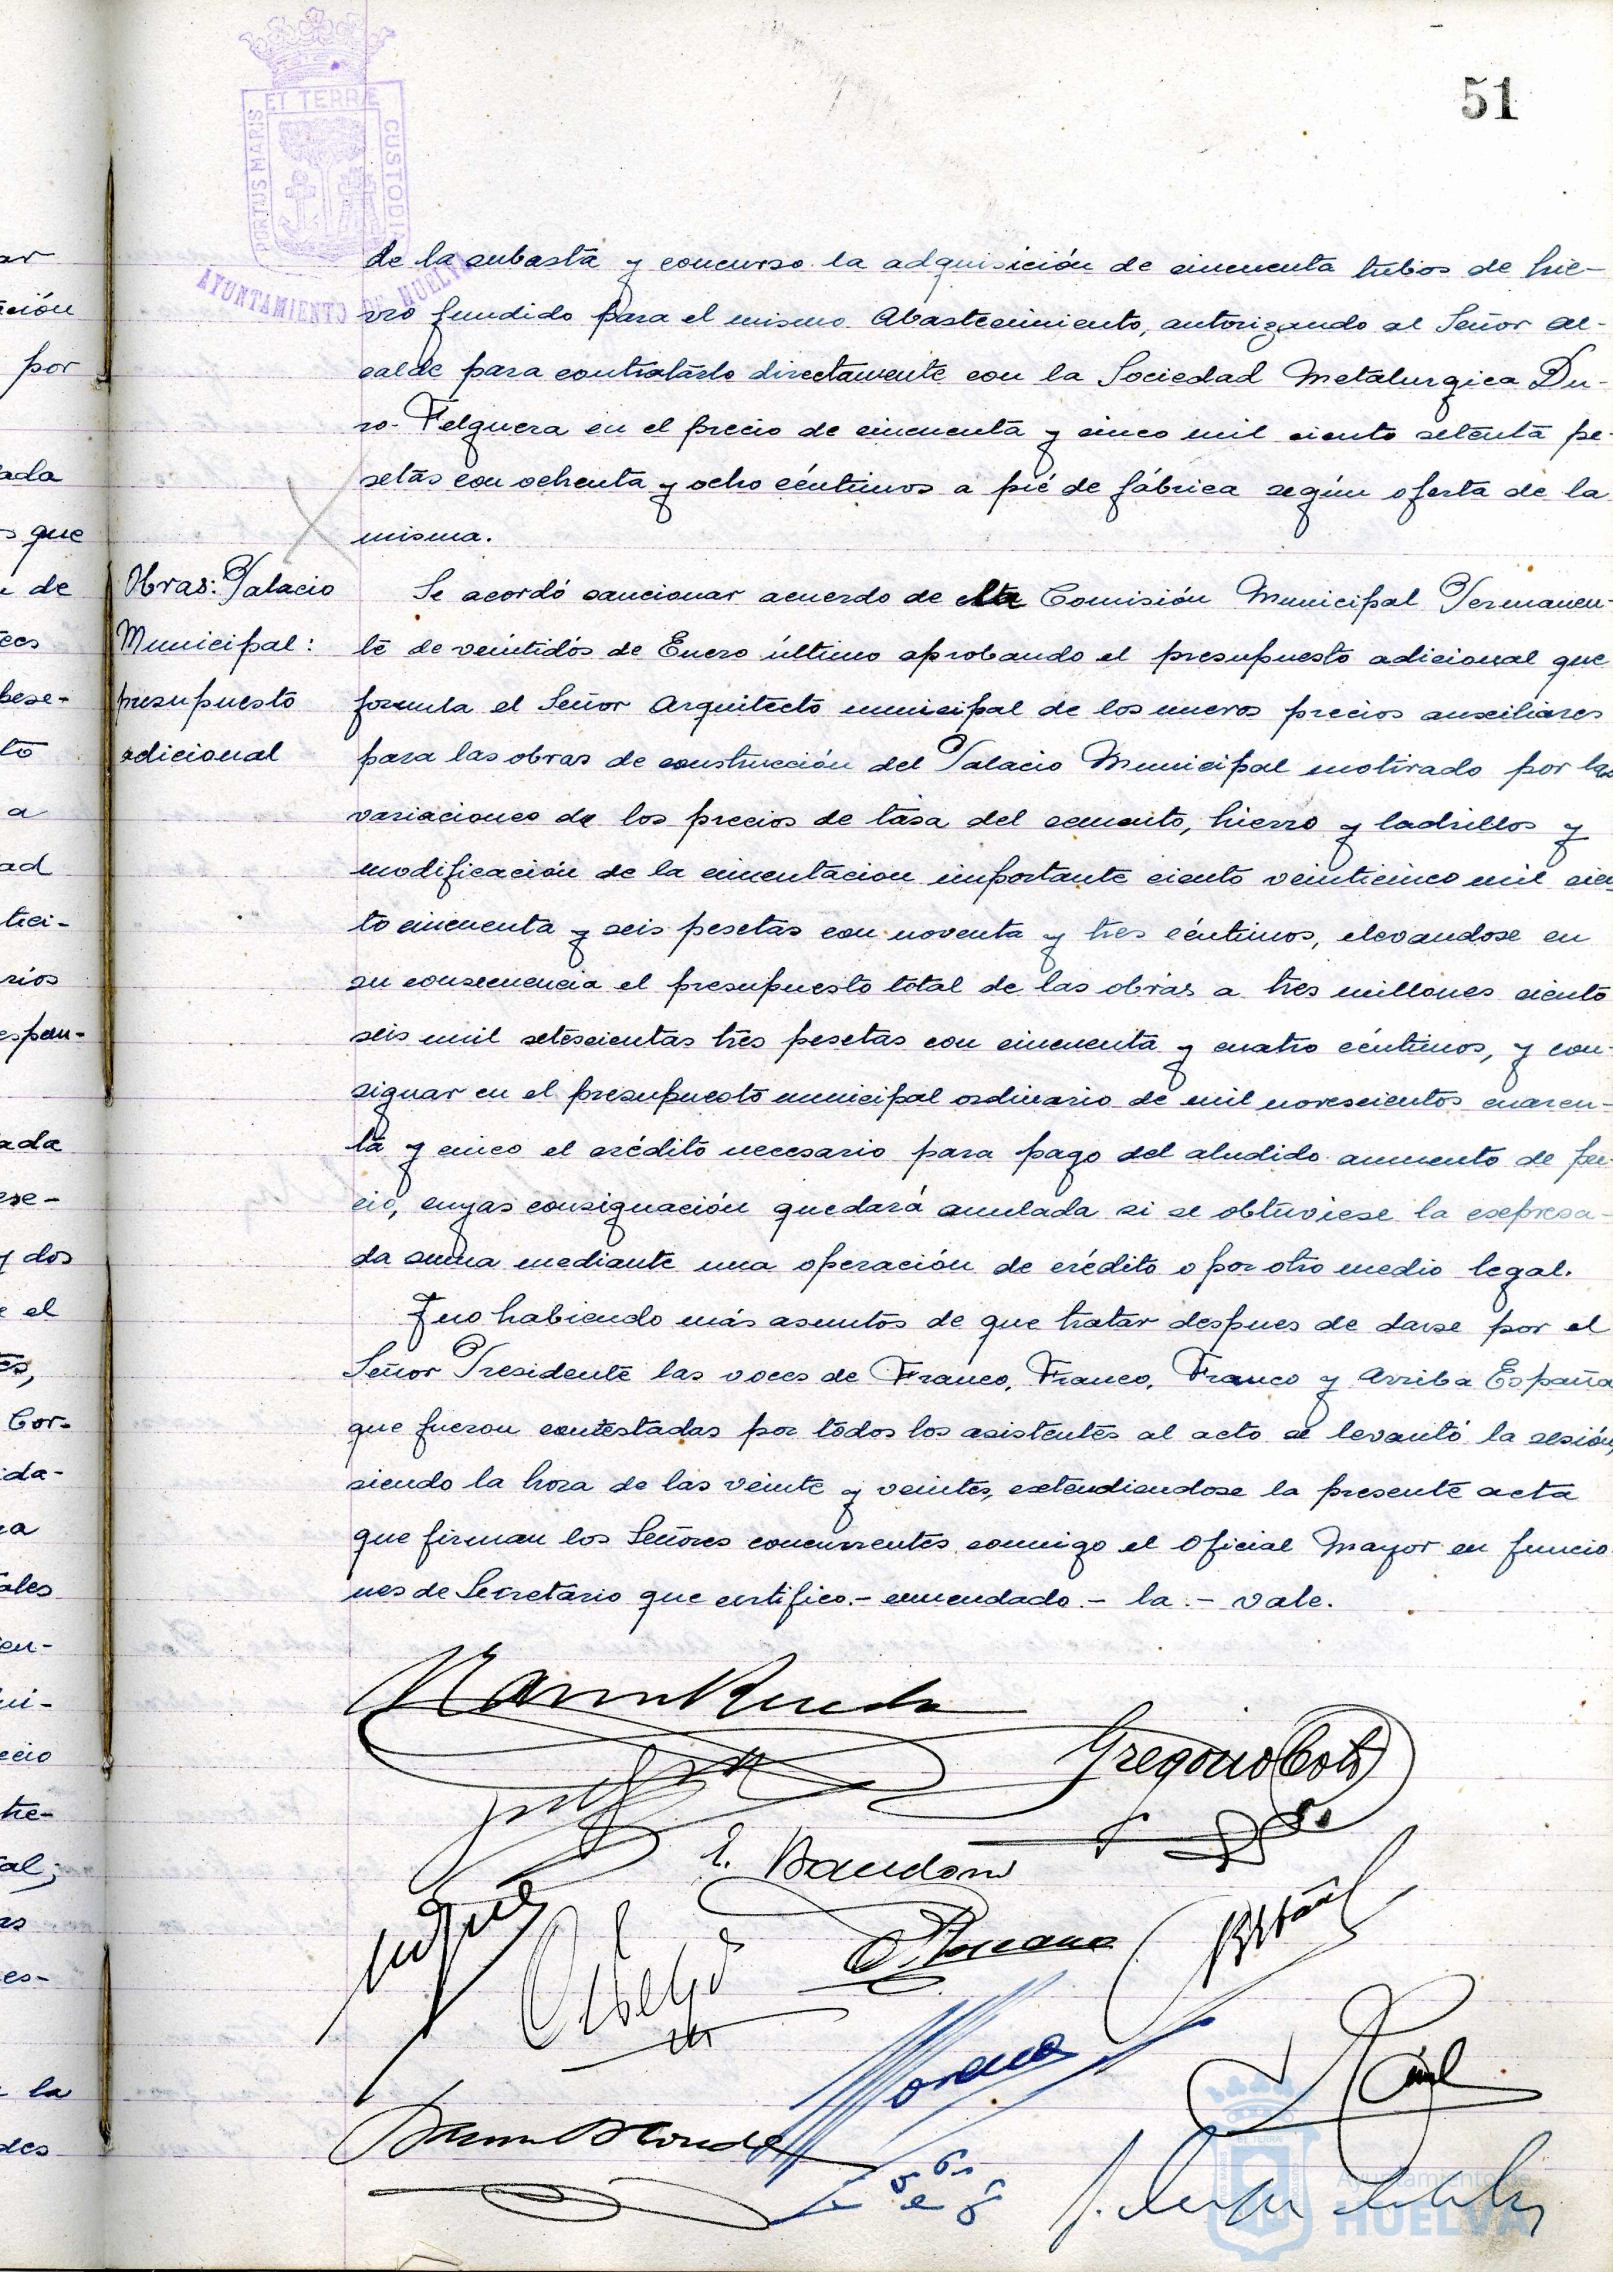 51
PORTUS MARIS ET TERRE CUSTODIA
AYUNTAMIENTO DE HUELVA
de la subasta y concurso la adquisición de cincuenta tubos de hie-
rro fundido para el mismo Abastecimiento, autorizando al Señor Al-
calde para contratarlo directamente con la Sociedad Metalurgica Du-
ro-Felguera en el precio de cincuenta y cinco mil ciento setenta pe-
setas con ochenta y ocho céntimos a pié de fábrica según oferta de la
misma.
Obras: Palacio
Municipal:
presupuesto
adicional
Se acordó sancionar acuerdo de la Comisión Municipal Permanen-
te de veintidós de Enero último aprobando el presupuesto adicional que
formula el Señor Arquitecto municipal de los nuevos precios auxiliares
para las obras de construcción del Palacio Municipal motivado por las
variaciones de los precios de tasa del cemento, hierro y ladrillos y
modificación de la cimentacion importante ciento veinticinco mil cien-
to cincuenta y seis pesetas con noventa y tres céntimos, elevandose en
su consecuencia el presupuesto total de las obras a tres millones ciento
seis mil setescientas tres pesetas con cincuenta y cuatro céntimos, y con-
signar en el presupuesto municipal ordinario de mil novescientos cuaren-
ta y cinco el crédito necesario para pago del aludido aumento de pre-
cio, cuyas consignación quedará anulada si se obtuviese la expresa-
da suma mediante una operación de crédito o por otro medio legal.
Y no habiendo más asuntos de que tratar despues de darse por el
Señor Presidente las voces de Franco, Franco, Franco y Arriba España
que fueron contestadas por todos los asistentes al acto se levantó la sesión,
siendo la hora de las veinte y veintes, extendiendose la presente acta
que firman los Señores concurrentes conmigo el Oficial Mayor en funcio-
nes de Secretario que certifico.- enmendado.- la.- vale.
Gregorio
Ayuntamiento de
HUELVA
ar
ación
por
ada
s que
de
a
ad
tici-
rios
ada
y dos
e el
Cor-
ida-
ales
la